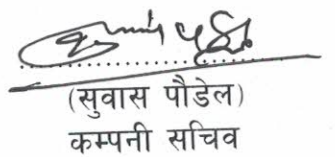 (सुवास पौडेल)
कम्पनी सचिव